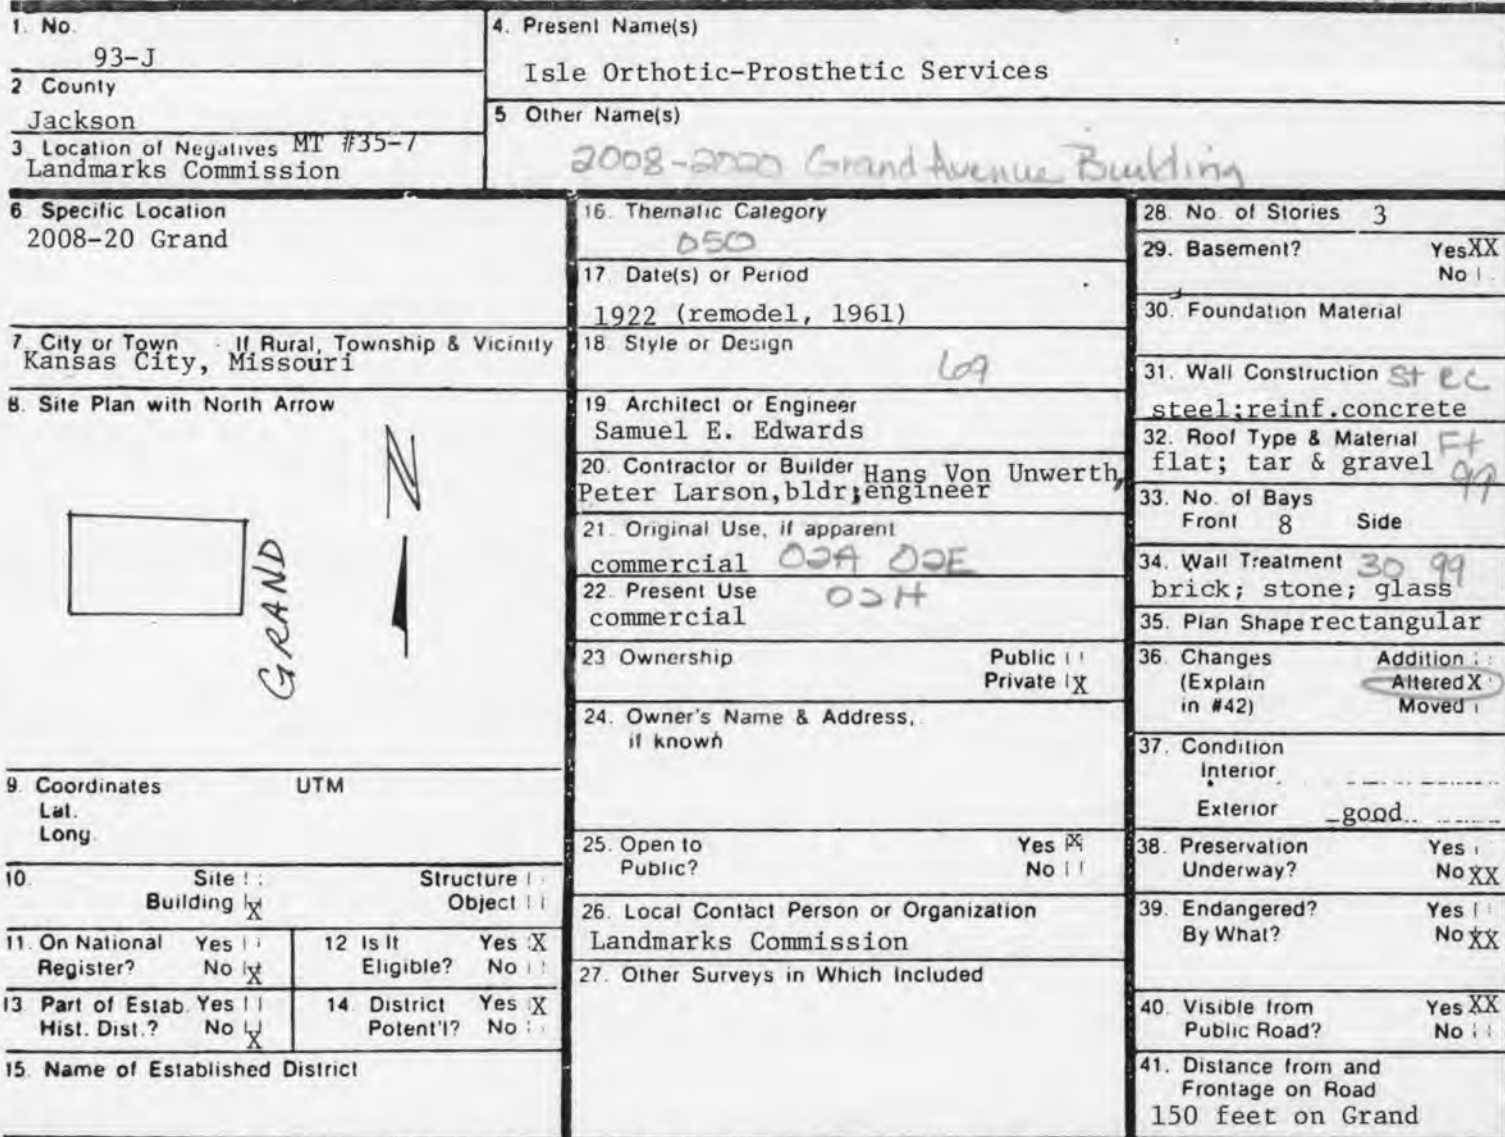 1. No.
93-J
2 County
Jackson
3 Location of Negatives MT #35-7
Landmarks Commission
4. Present Name(s)
Isle Orthotic-Prosthetic Services
5 Other Name(s)
2008-2020 Grand Avenue Building
6 Specific Location
2008-20 Grand
7 City or Town If Rural, Township & Vicinity
Kansas City, Missouri
8. Site Plan with North Arrow
N
GRAND
9. Coordinates UTM
Lat.
Long.
10. Site Structure
Building X Object
11. On National Yes
Register? No X
12 Is It Yes X
Eligible? No
13 Part of Estab. Yes
Hist. Dist.? No X
14. District Yes X
Potent'l? No
15. Name of Established District
16. Thematic Category
050
17. Date(s) or Period
1922 (remodel, 1961)
18. Style or Design
69
19. Architect or Engineer
Samuel E. Edwards
20. Contractor or Builder Hans Von Unwerth,
Peter Larson,bldr;engineer
21. Original Use, if apparent
commercial 02A 02E
22. Present Use 02H
commercial
23 Ownership Public
Private X
24. Owner's Name & Address,
if known
25. Open to Yes X
Public? No
26. Local Contact Person or Organization
Landmarks Commission
27. Other Surveys in Which Included
28. No. of Stories 3
29. Basement? Yes XX
No
30. Foundation Material
31. Wall Construction St RC
steel;reinf.concrete
32. Roof Type & Material Ft
flat; tar & gravel 99
33. No. of Bays
Front 8 Side
34. Wall Treatment 30 99
brick; stone; glass
35. Plan Shape rectangular
36. Changes Addition
(Explain Altered X
in #42) Moved
37. Condition
Interior
Exterior good
38. Preservation Yes
Underway? No XX
39. Endangered? Yes
By What? No XX
40. Visible from Yes XX
Public Road? No
41. Distance from and
Frontage on Road
150 feet on Grand